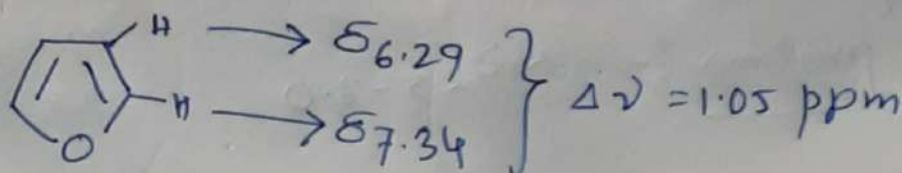 H → δ6.29
H → δ7.34 } Δν = 1.05 ppm
O